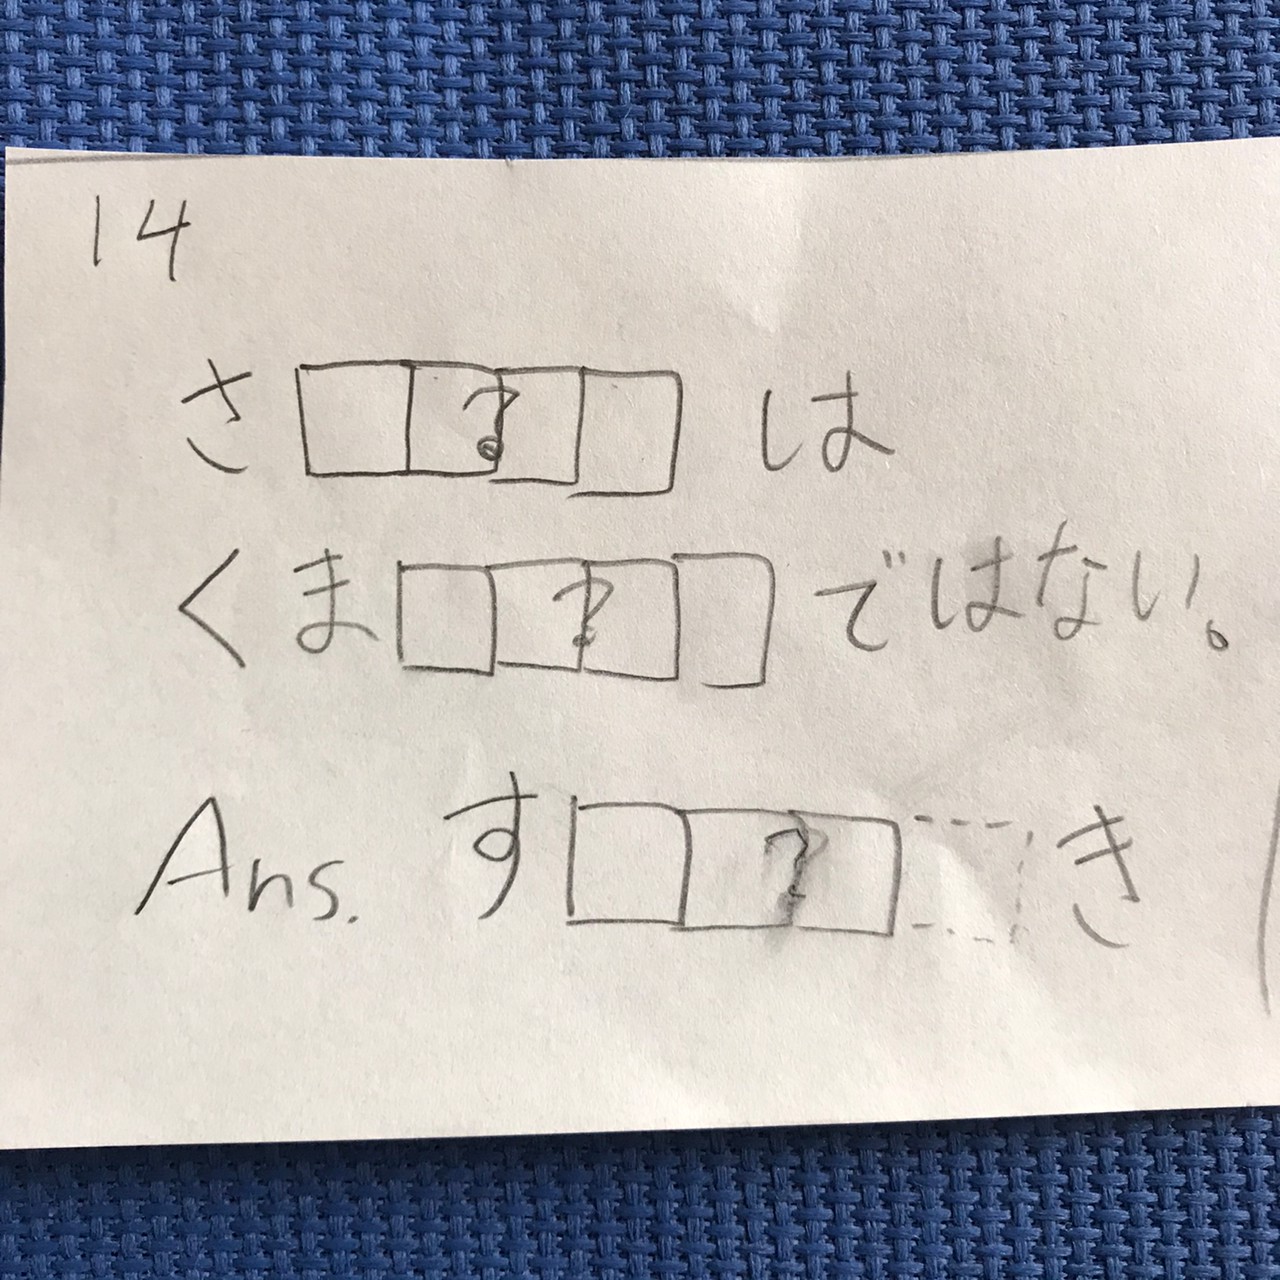 14
さ ? は
くま ? ではない。
Ans. す ? き